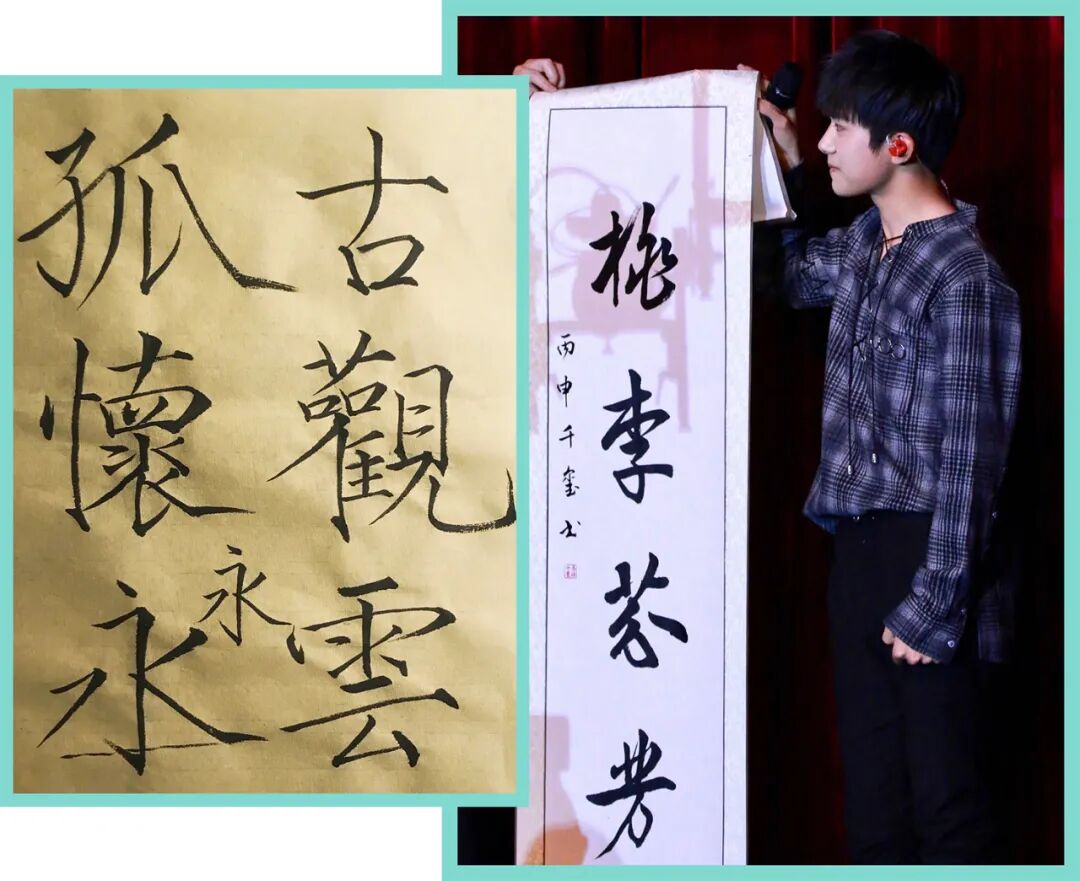 古觀雲
永
孤懷永
桃李芬芳
丙申千玺书